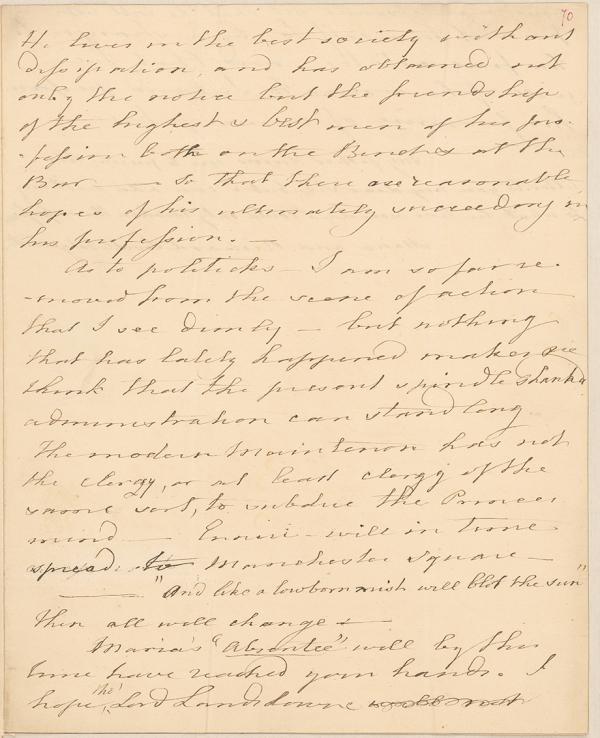 70
He lives in the best society without
dissipation, and has obtained not
only the notice but the friendship
of the highest & best men of his pro-
-fession both on the Bench & at the
Bar — so that there are reasonable
hopes of his ultimately succeeding in
his profession. —
As to politicks — I am so far re-
-moved from the scene of action
that I see dimly — but nothing
that has lately happened makes me
think that the present spindle shank'd
administration can stand long
The modern Maintenon has not
the clergy, or at least clergy of the
same sort, to subdue the Princes
mind — Ennui will in time
spread to Manchester Square —
— "And like a lowborn mist will blot the sun"
then all will change —
Maria's "Absentee" will by this
time have reached your hands. I
hope, tho' Lord Landsdowne will not